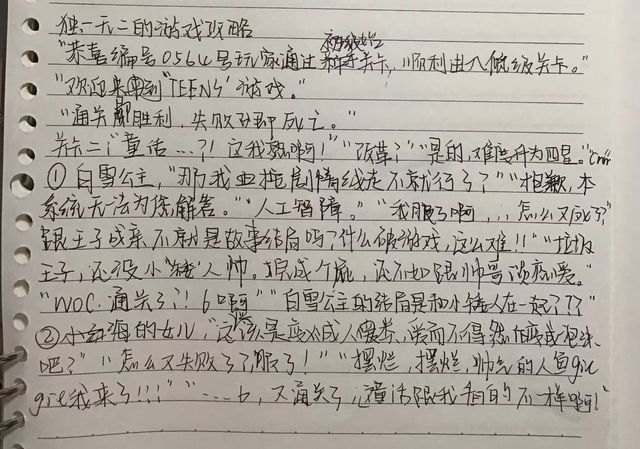 独一无二的游戏攻略
"恭喜编号0564号玩家通过初级关卡,顺利进入低级关卡。"
"欢迎来到'TEENS'游戏。"
"通关即胜利,失败即死亡。"
关卡二"童话…?!这我熟啊!""改革?""是的,难度升为四星。"
①白雪公主,"那我按照剧情线走不就行了?""抱歉,本
系统无法为您解答。""人工智障。""我服了啊,..怎么又死了?
跟王子成亲,不就是故事结局吗?什么破游戏,这么难!!""垃圾
王子,还没小"矮"人帅。搞成个屁,还不如跟帅哥谈恋爱。"
"WOC.通关了?!6啊""白雪公主的结局是和小矮人在一起???"
②小红海的女儿,"这该是变成人假装,爱而不得然后变成泡沫
吧?""怎么又失败了?服了!""摆烂,摆烂,帅气的人鱼gie
gie我来了!!!""……6,又通关了,童话跟我看的不一样啊!"